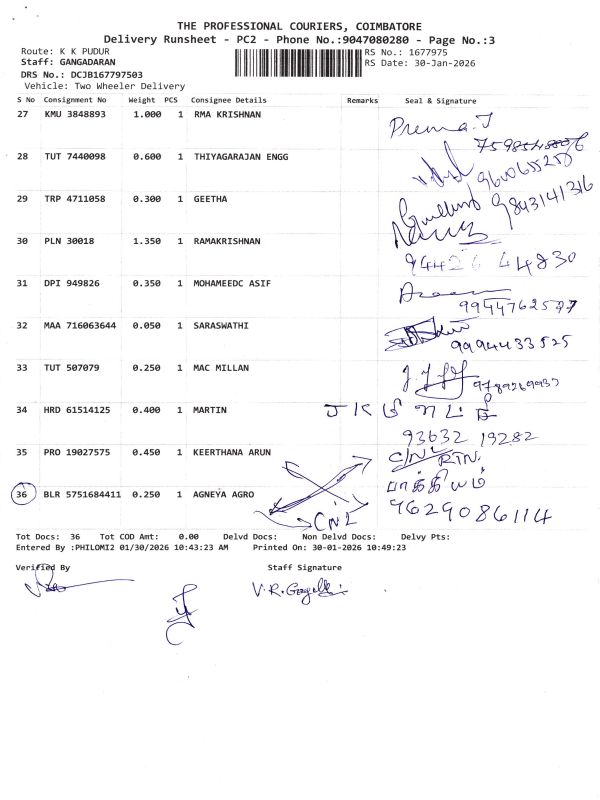 THE PROFESSIONAL COURIERS, COIMBATORE
Delivery Runsheet - PC2 - Phone No.:9047080280 - Page No.:3
Route: K K PUDUR
RS No.: 1677975
Staff: GANGADARAN
RS Date: 30-Jan-2026
DRS No.: DCJB167797503
Vehicle: Two Wheeler Delivery
S No Consignment No Weight PCS Consignee Details Remarks Seal & Signature
27 KMU 3848893 1.000 1 RMA KRISHNAN
Prema.J
28 TUT 7440098 0.600 1 THIYAGARAJAN ENGG
29 TRP 4711058 0.300 1 GEETHA
9843141316
30 PLN 30018 1.350 1 RAMAKRISHNAN
94426 44830
31 DPI 949826 0.350 1 MOHAMEEDC ASIF
9944762577
32 MAA 716063644 0.050 1 SARASWATHI
9994433525
33 TUT 507079 0.250 1 MAC MILLAN
9789269937
34 HRD 61514125 0.400 1 MARTIN
93632 19282
35 PRO 19027575 0.450 1 KEERTHANA ARUN
C/NL RTN.
36 BLR 5751684411 0.250 1 AGNEYA AGRO
பாக்கியம்
9629086114
CNL
Tot Docs: 36 Tot COD Amt: 0.00 Delvd Docs: Non Delvd Docs: Delvy Pts:
Entered By :PHILOMI2 01/30/2026 10:43:23 AM Printed On: 30-01-2026 10:49:23
Verified By Staff Signature